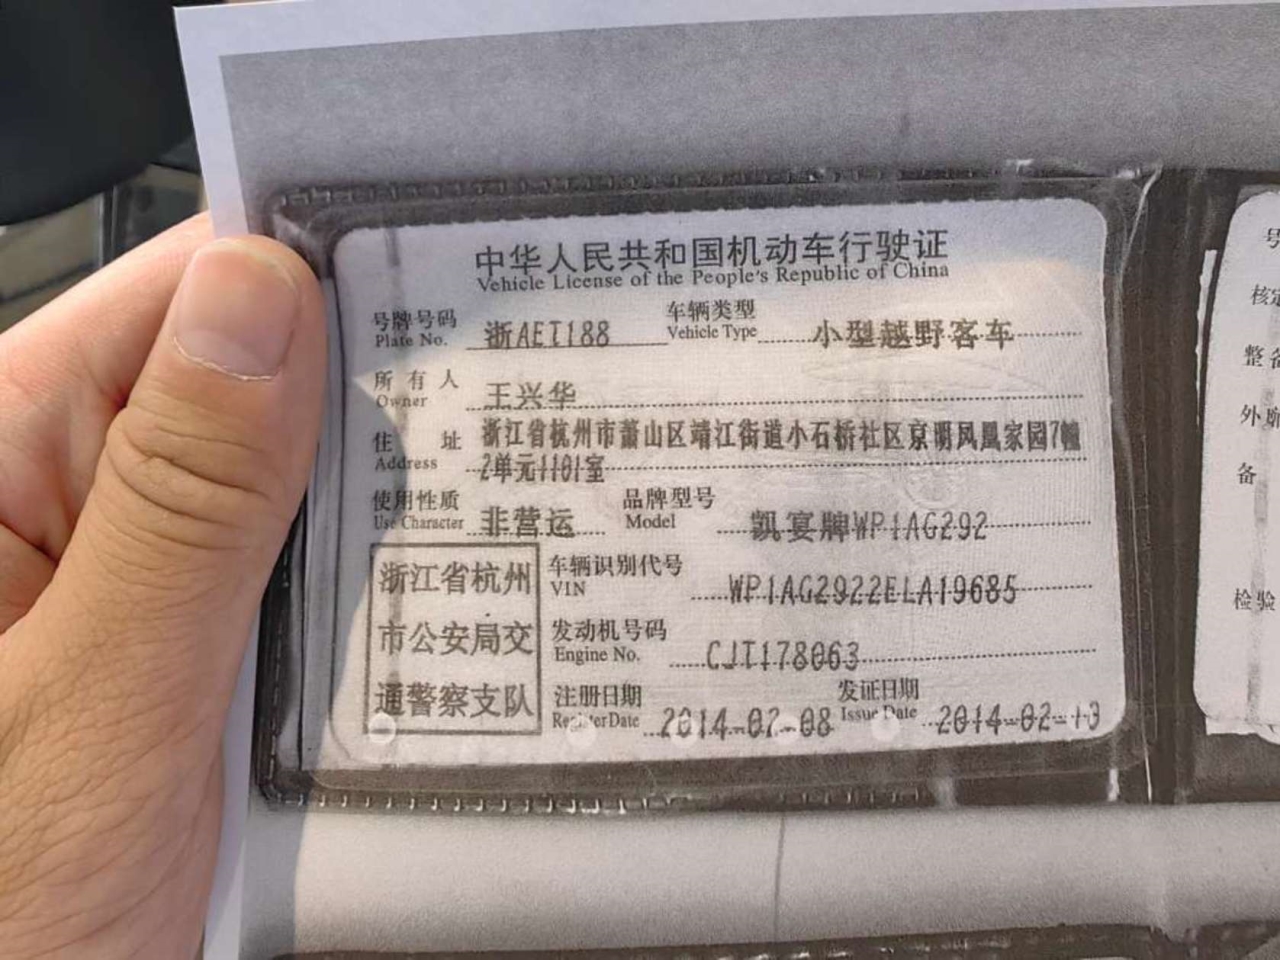 中华人民共和国机动车行驶证
Vehicle License of the People's Republic of China
号牌号码 浙AET188 车辆类型 小型越野客车
Plate No. Vehicle Type
所有人 王兴华
Owner
住址 浙江省杭州市萧山区靖江街道小石桥社区京明凤凰家园7幢
Address 2单元1101室
使用性质 非营运 品牌型号 凯宴牌WP1AG292
Use Character Model
浙江省杭州
市公安局交
通警察支队
车辆识别代号 WP1AG2922ELA19685
VIN
发动机号码 CJT178063
Engine No.
注册日期 2014-02-08 发证日期 2014-02-13
Register Date Issue Date
号
核定
整备
外廓
备
检验